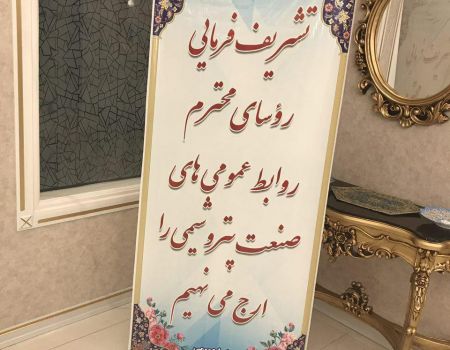 تشریف فرمایی
رؤسای محترم
روابط عمومی های
صنعت پتروشیمی را
ارج می نهیم